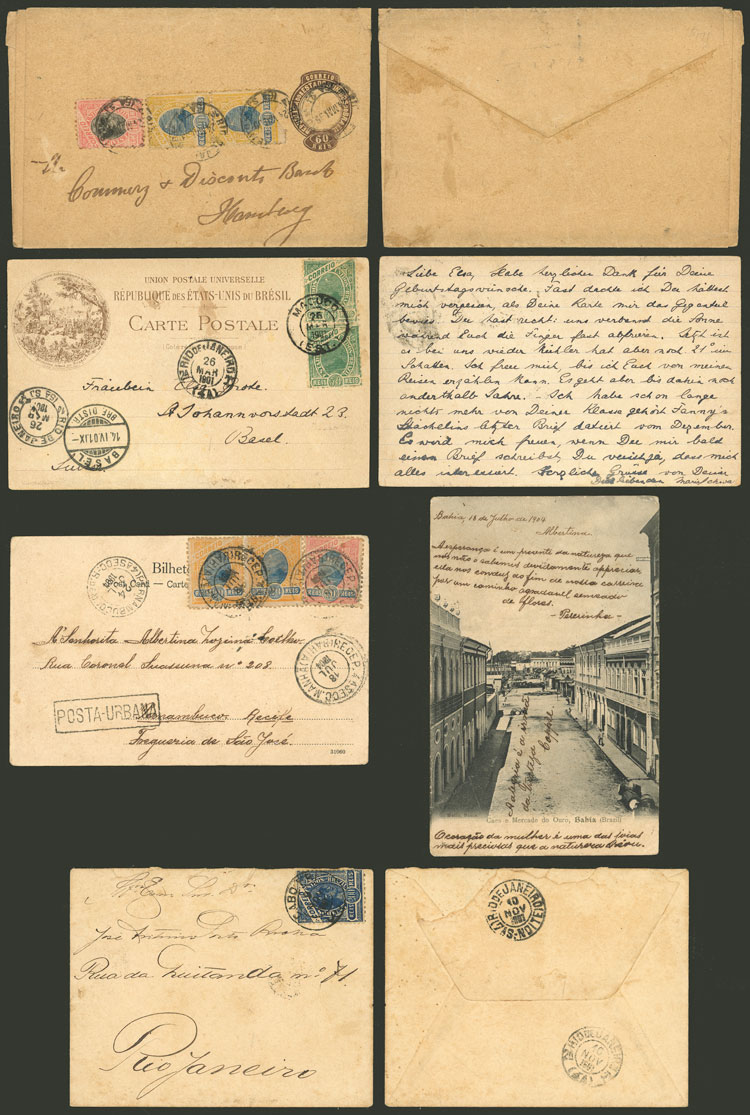 CORREIO
60
REIS
Commerz & Disconto Bank
Hamburg
UNION POSTALE UNIVERSELLE
RÉPUBLIQUE DES ÉTATS-UNIS DU BRÉSIL
CARTE POSTALE
CORREIO
26
MAR
1901
RIO DE JANEIRO
26
MAR
1901
Fräulein
A. Johannvorstadt 23.
Basel.
BASEL
BRF. DISTR.
14.IV.01.IX
Liebe Elsa, Habe herzlichen Dank für Deine
Geburtstagswünsche. Fast dachte ich Du hättest
mich vergessen, als Deine Karte mir das Gegenteil
bewies. Du hast recht: uns verbrannt die Sonne
während Euch die Finger fast abfrieren. Jetzt ist
es bei uns wieder kühler hat aber noch 21° im
Schatten. Ich freue mich, bis ich Euch von meinen
Reisen erzählen kann. Es geht aber bis dahin noch
anderthalb Jahre. - Ich habe schon lange
nichts mehr von Deiner Klasse gehört Fanny's
Stähelins letzter Brief datiert vom Dezember.
Es wird mich freuen, wenn Du mir bald
einen Brief schreibst, Du weisst ja, dass mich
alles interessiert. Herzliche Grüsse von Deiner
Bilhete
Post Card — Carte
A' Senhorita Albertina Coelho
Rua Coronal Suassuna nº 208.
POSTA-URBANA
Pernambuco, Recife
Fregueria de São José.
31060
18
JUL
1904
Bahia, 18 de Julho de 1904
Albertina.
A esperança é um presente da natureza que
nós não o sabemos devidamente appreciar
ella nos conduz ao fim de nossa carreira
por um caminho agradavel semeado
de flores.
Pererinha
A alegria é a irmã
da
Caes e Mercado do Ouro, Bahia (Brazil)
O coração da mulher é uma das joias
mais preciosas que a natureza criou.
José Antonio
Rua da Quitanda nº 71.
Rio Janeiro
RIO DE JANEIRO
10
NOV
RIO DE JANEIRO
10
NOV